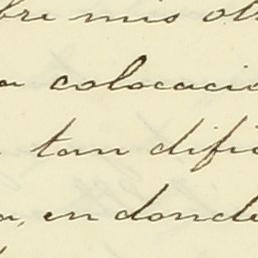 bre mis ot
a colocaci
tan difí
a, en donde